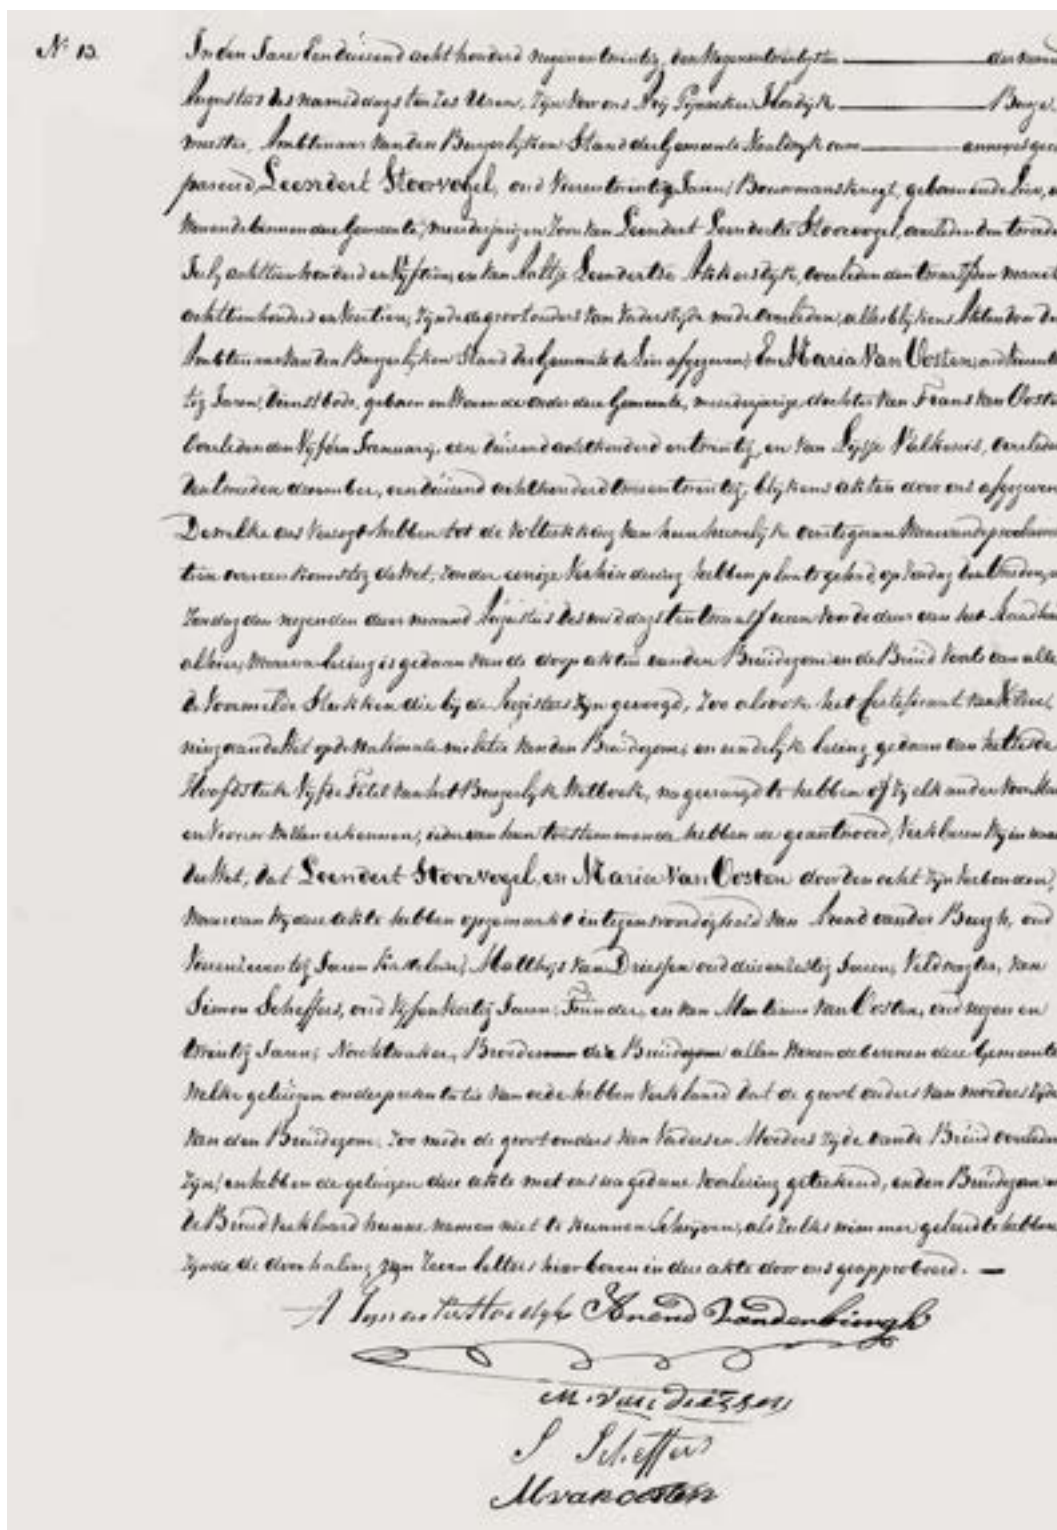 N° 13.
In den Jare Een duisend acht honderd negen en twintig, den Negenentwintigsten der
Augustus des namiddags ten zes Uren, zijn voor ons Arij Pijnacker Hordijk Burge
meester, Ambtenaar van den Burgerlijken Stand der Gemeente Naaldwijk
Leendert Stoorvogel, oud Vierentwintig Jaren, Bouwmansknegt, geboren
wonende binnen dese Gemeente, meerderjarigen Zoon van Leendert Leendertse Stoorvogel, overleden den
July achttienhonderd en Vijftien, en van Aaltje Leendertse overleden den twaalfden maart
achttienhonderd en Veertien, zijnde de grootouders van Vaderszijde mede overleden, alles blijkens Akten door de
Ambtenaar van den Burgerlijken Stand der Gemeente de Lier afgegeven; En Maria Van Oosten, oud
tig Jaren, dienstbode, geboren en Wonende onder dese Gemeente, meerderjarige dochter van Frans van Ooste
Overleden den Vijfden January, een duisend achthonderd en twintig, en van overleden
den tweeden december, een duisend achthonderd twee en twintig, blijkens akten door ons afgegeven
Dewelke ons versogt hebben tot de voltrekking van hun huwelijk overtegaan Waarvan de
ten overeenkomstig de Wet, zonder eenige Verhindering hebben plaats gehad, op Zondag den tweeden,
Zondag den negenden deser maand Augustus des middags ten twaalf uren voor de deur van het
alhier, Waarna lesing is gedaan van de doop akten van den Bruidegom en de Bruid
de voormelde Stukken die bij de Registers zijn gevoegd, zoo als ook het Certificaat van Voldoe,
ning aan de Wet op de Nationale militie van den Bruidegom; en eindelijk lesing gedaan van het
Hoofdstuk Vijfde Titel van het Burgerlijk Wetboek, na gevraagd te hebben of zij elkander voor Man
en Vrouw Willen erkennen, ieder van hun toestemmende hebbende geantwoord, Verklaren Wij in naam
der Wet, dat Leendert Stoorvogel, en Maria Van Oosten door den echt zijn verbonden,
Waarvan Wij dese akte hebben opgemaakt in tegenwoordigheid van Arend van der Burgh, oud
Jaren Matthijs van Driessen oud drieendertig Jaren, Veldwagter, van
Simon Scheffers, oud Vijfenveertig Jaren, en van van Oosten, oud negen en
twintig Jaren, Nachtwaker, Broeder der Bruid allen Wonende binnen dese Gemeente
Welke getuigen onder presentatie van eede hebben Verklaard dat de groot ouders van moeders zijde
van den Bruidegom, zoo mede de grootouders van Vaders en Moeders zijde van de Bruid overleden
zijn; en hebben de getuigen dese akte met ons na gedane voorlesing geteekend, en den Bruidegom en
de Bruid verklaard hunne namen niet te kunnen Schrijven, als zulks nimmer geleerd te hebben
zijnde de doorhaling van zeven letters hierboven in dese akte door ons geapprobeerd.
A Pijnacker Hordijk Arend Vanderburgh
M. van driessen
S Scheffers
M van oosten